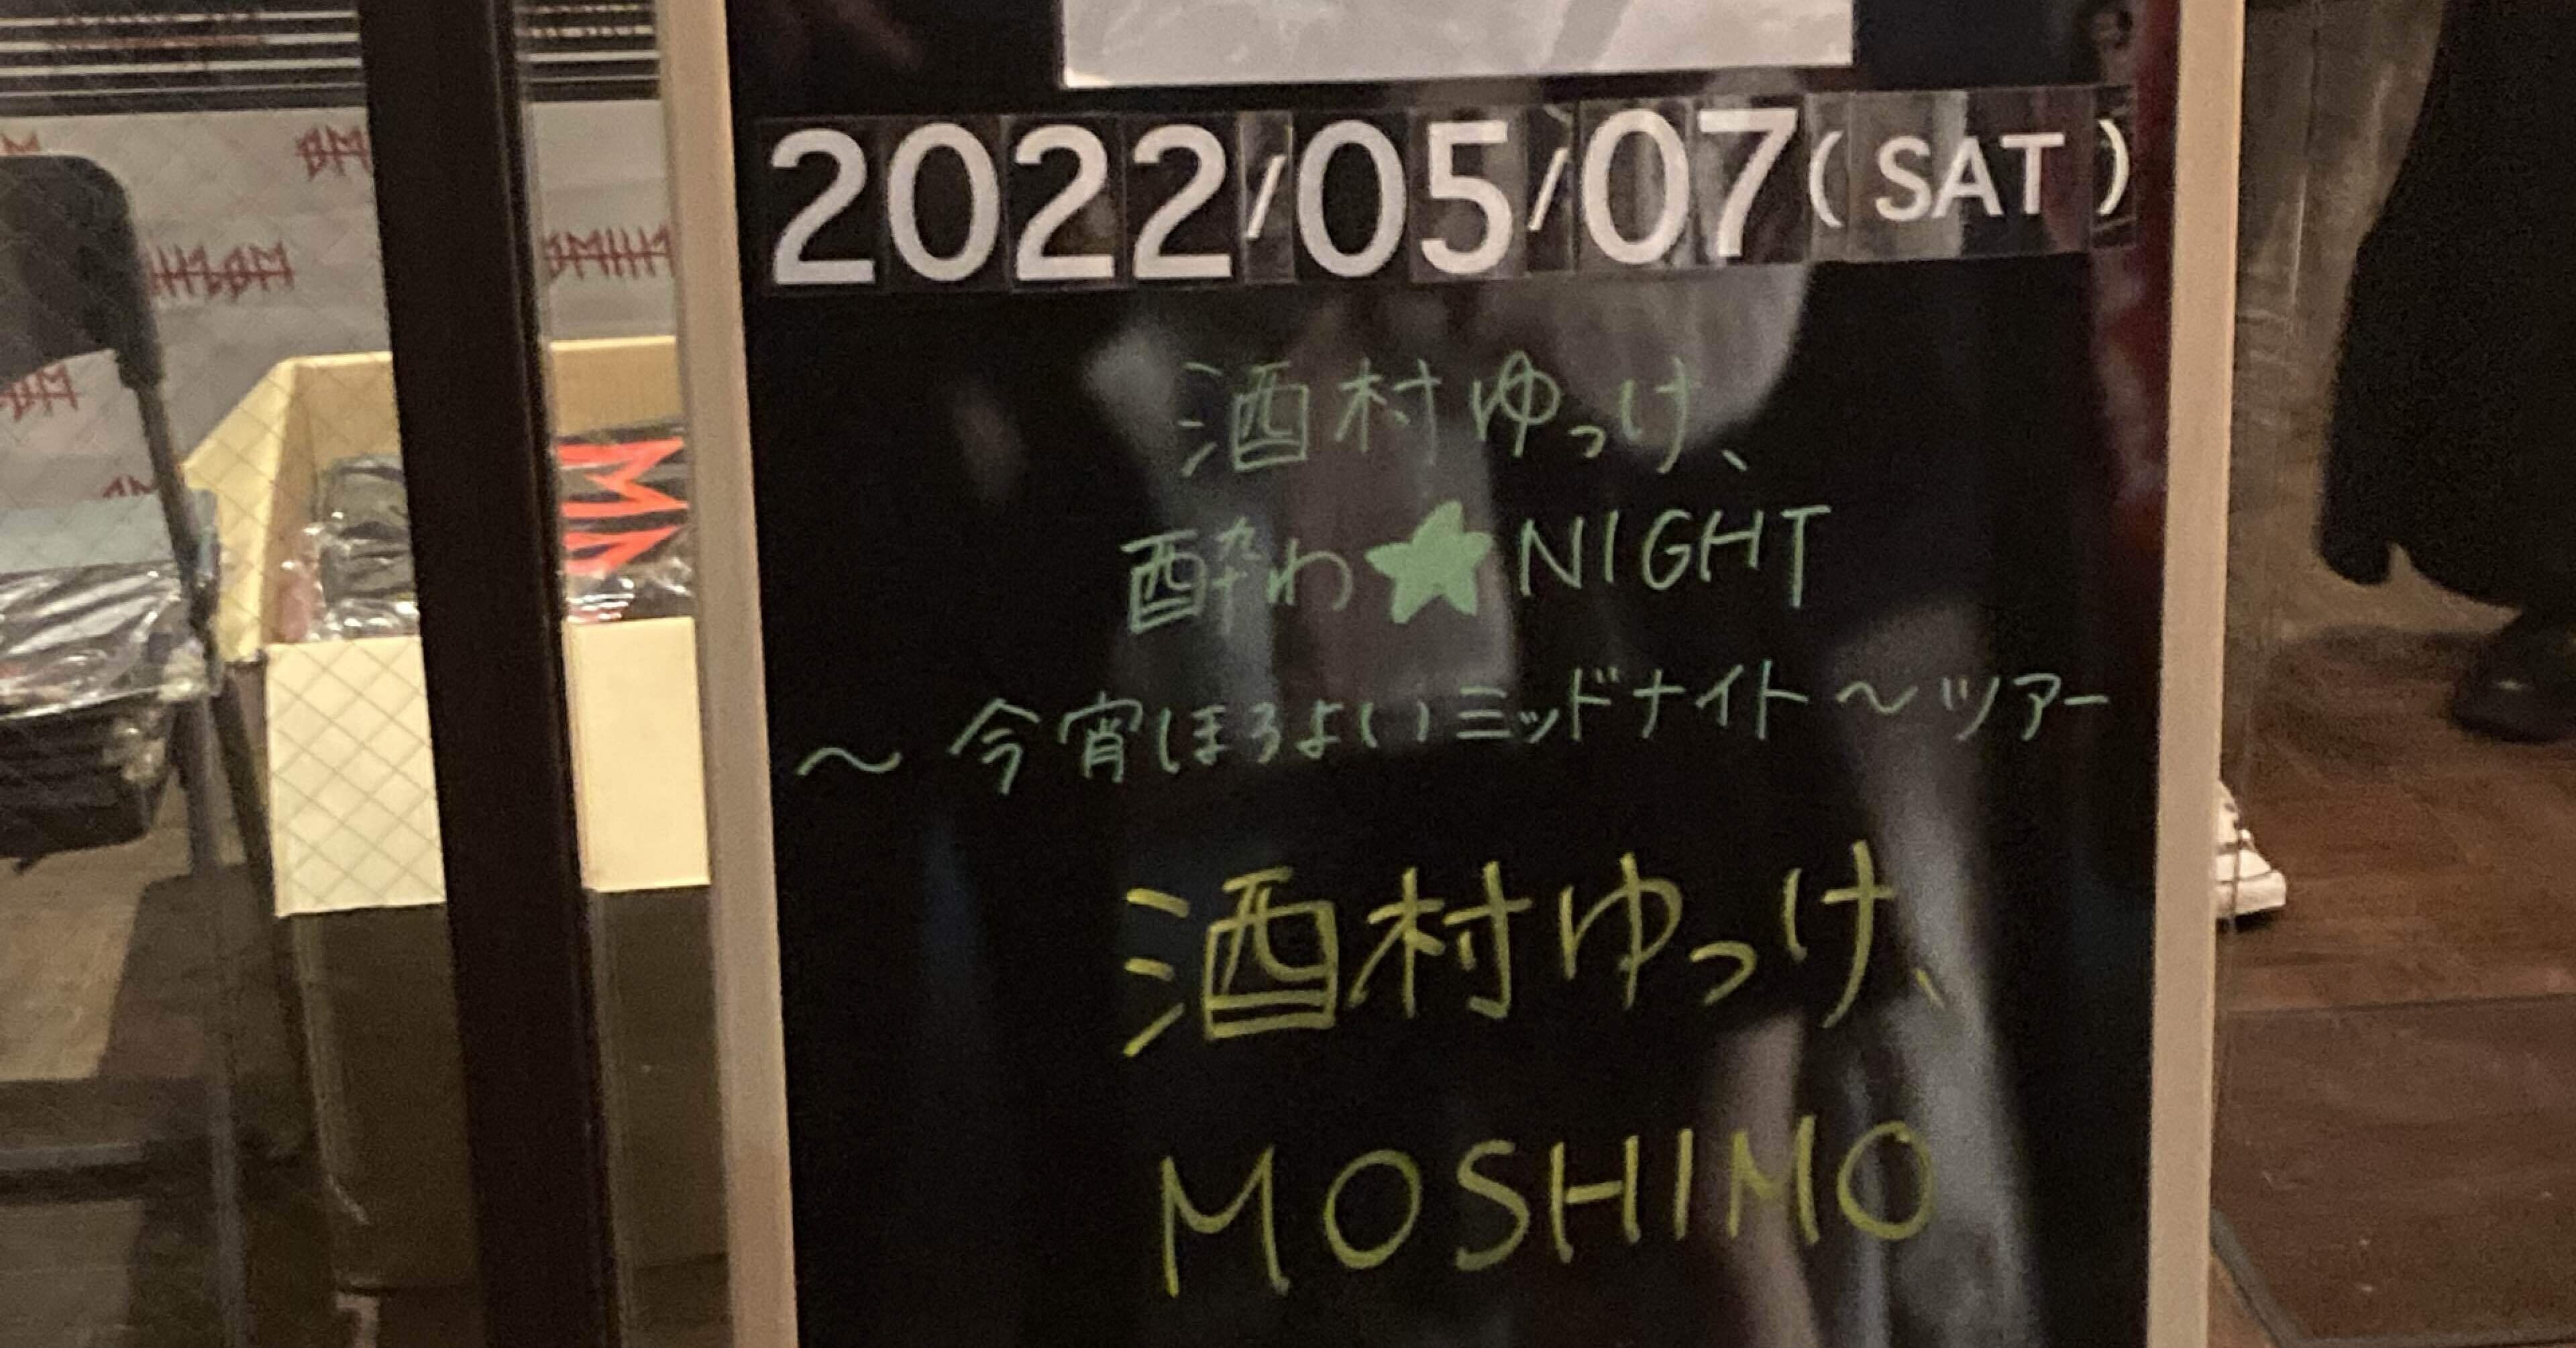 2022/05/07(SAT)
酒村ゆっけ、
酔わ★NIGHT
～今宵ほろよいミッドナイト～ツアー
酒村ゆっけ、
MOSHIMO